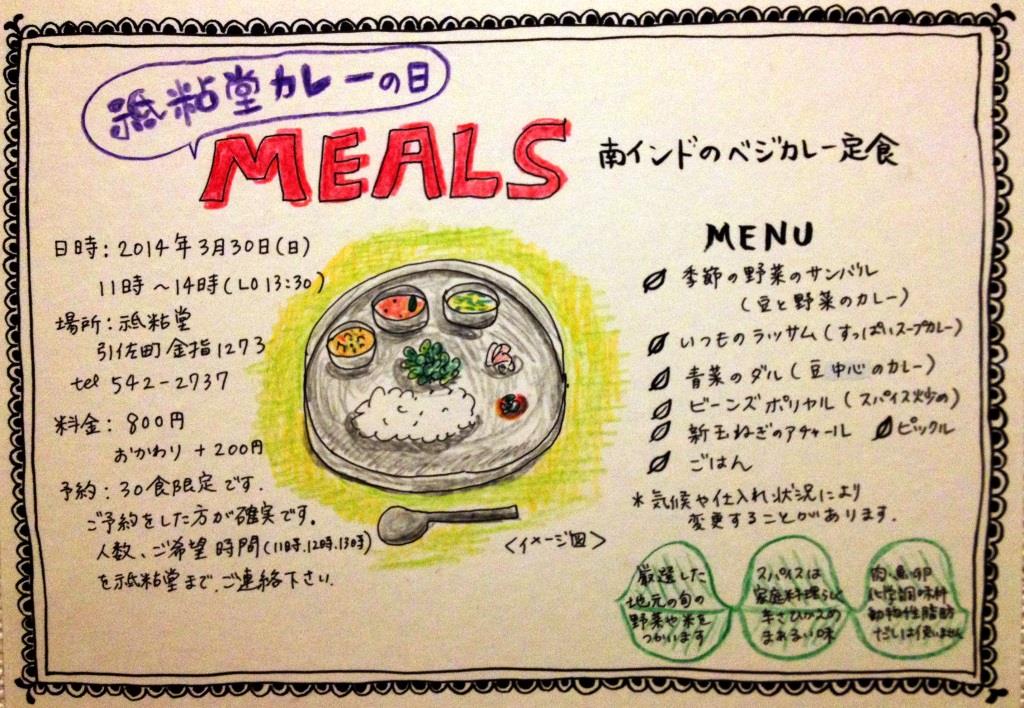 祇粘堂カレーの日
MEALS
南インドのベジカレー定食
日時：2014年3月30日(日)
11時～14時(LO 13:30)
場所：祇粘堂
引佐町金指1273
tel 542-2737
料金：800円
おかわり+200円
予約：30食限定です.
ご予約をした方が確実です。
人数、ご希望時間(11時.12時.13時)
を祇粘堂まで、ご連絡下さい.
MENU
季節の野菜のサンバル
(豆と野菜のカレー)
いつものラッサム(すっぱいスープカレー)
青菜のダル(豆中心のカレー)
ビーンズポリヤル(スパイス炒め)
新玉ねぎのアチャール ピックル
ごはん
*気候や仕入れ状況により
変更することがあります.
<イメージ図>
厳選した
地元の旬の
野菜や米を
つかいます
スパイスは
家庭料理らしく
辛さひかえめ
まあるい味
肉・魚・卵
化学調味料
動物性脂肪
だしは使いません